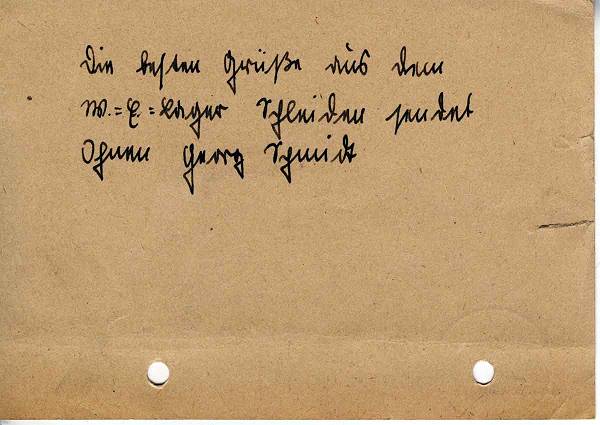 Die besten Grüße aus dem
W.=E.=Lager Schleiden sendet
Ihnen Georg Schmidt